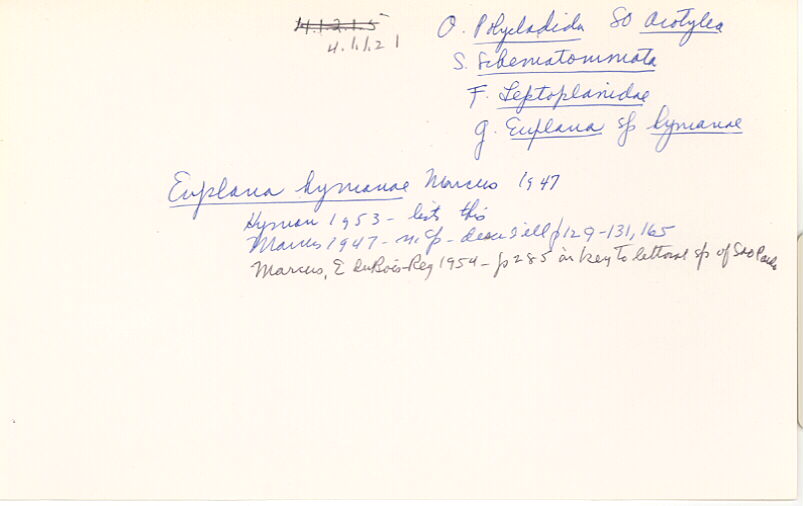 4.1.2.1.5
4.1.1.2 1
O. Polycladida SO Acotylea
S. Schematommata
F. Leptoplanidae
g. Euplana sp hymanae
Euplana hymanae Marcus 1947
Hyman 1953 - lists this
Marcus 1947 - n. sp - desc & ill p 129-131, 165
Marcus, E duBois-Rey 1954 - p 285 in key to littoral sp of Sao Paulo